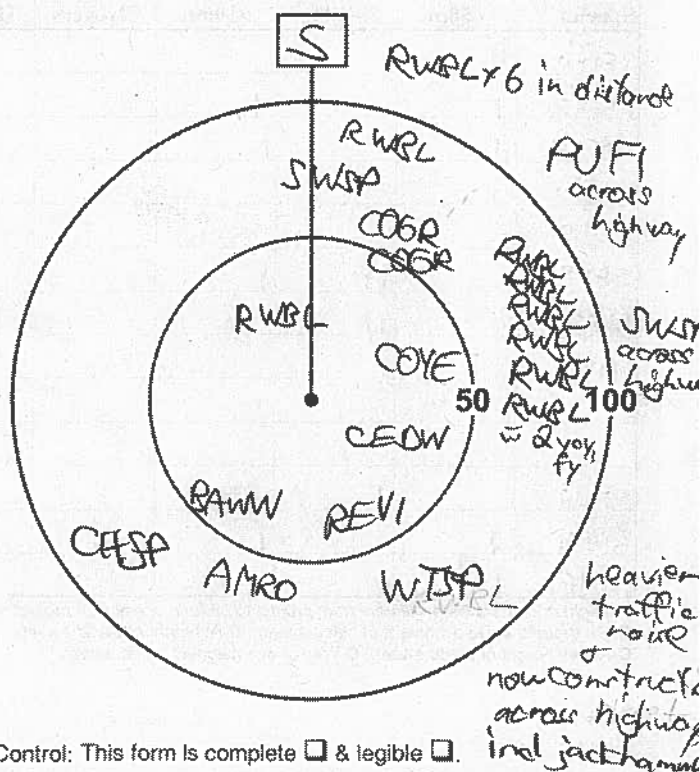 S
RWBL x 6 in distance
RWBL
SWSP
PUFI
across
highway
COGR
COGR
RWBL
RWBL
RWBL
RWBL
RWBL
RWBL
SWSP
across
highway
RWBL
COYE
50
100
CEDW
BAWW
REVI
CHSP
AMRO
WTSP
RWBL
heavier
traffic
noise
+
now construct
across highway
incl jackhamm
Control: This form is complete ☐ & legible ☐.